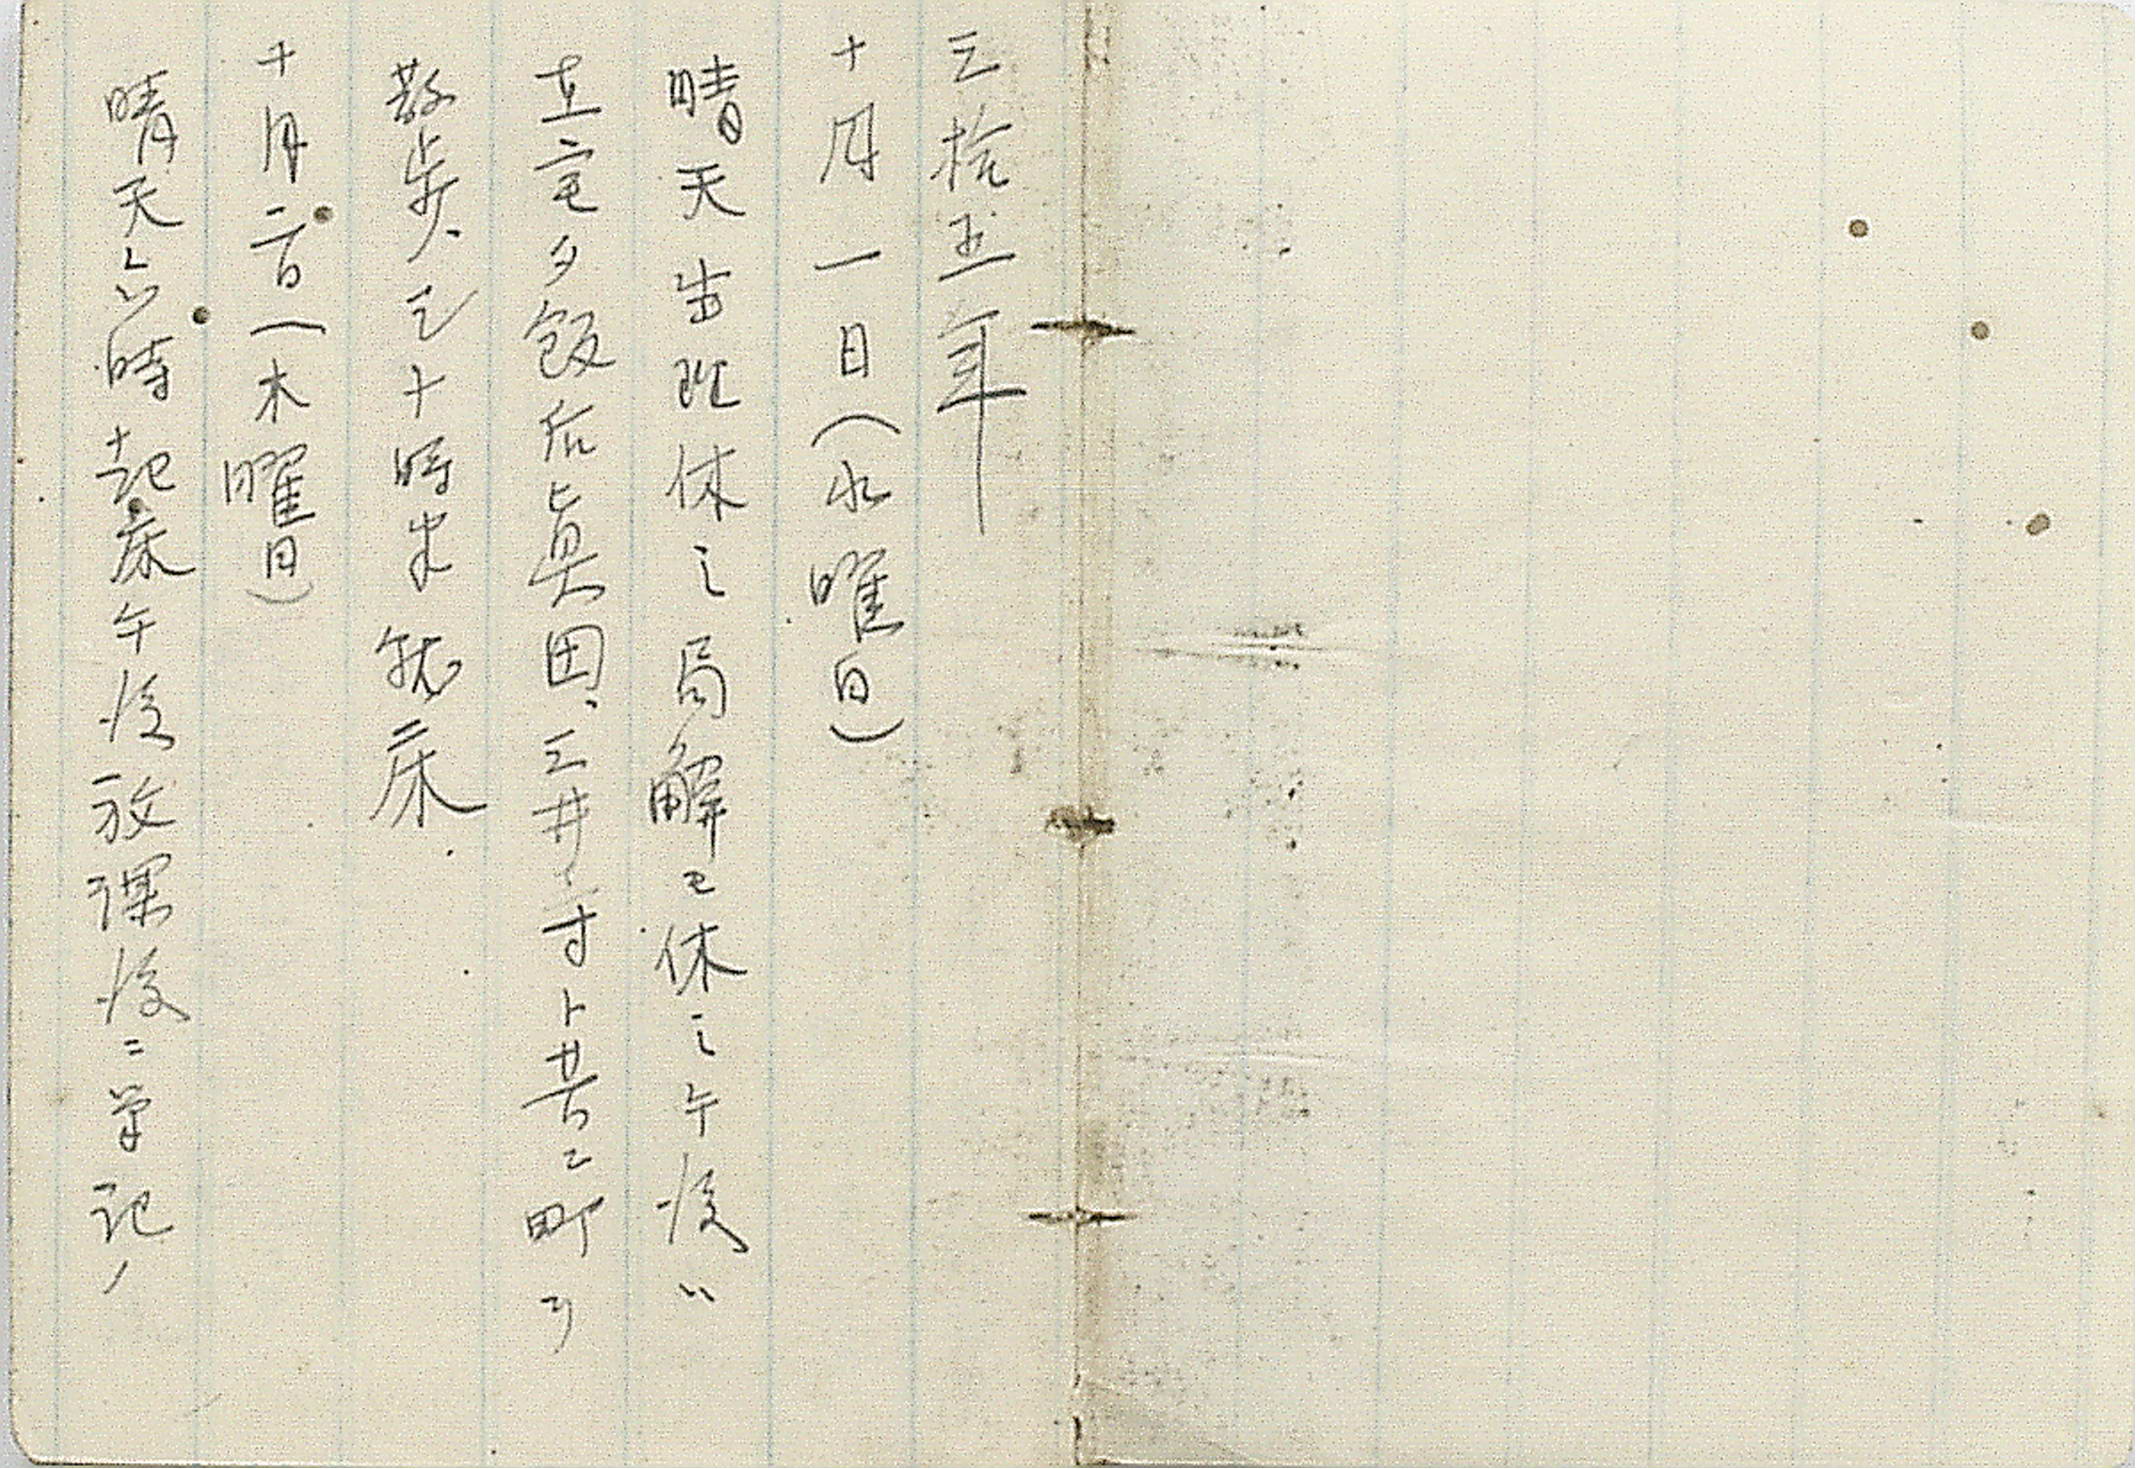 三拾五年
十月一日(水曜日)
晴天出班休之局解モ休之午後ハ
在宅夕飯后眞田、三井ノ寸ト共ニ町ヲ
散歩、之十時半就床
十月二日(木曜日)
晴天六時起床午後放課後ニ筆記ノ